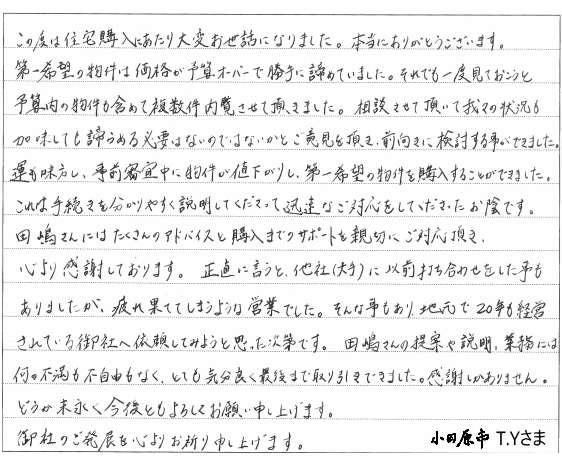 この度は住宅購入にあたり大変お世話になりました。本当にありがとうございます。
第一希望の物件は価格が予算オーバーで勝手に諦めていました。それでも一度見ておこうと
予算内の物件も含めて複数件内覧させて頂きました。相談させて頂いて我々の状況も
加味しても諦らめる必要はないのではないかとご意見を頂き、前向きに検討する事ができました。
運も味方し、事前審査中に物件が値下がりし、第一希望の物件を購入することができました。
これは手続きを分かりやすく説明してくださって迅速なご対応をしてくださったお陰です。
田嶋さんにはたくさんのアドバイスと購入までのサポートを親切にご対応頂き、
心より感謝しております。正直に言うと、他社(大手)に以前打ち合わせをした事も
ありましたが、疲れ果ててしまうような営業でした。そんな事もあり、地元で20年も経営
されている御社へ依頼してみようと思った次第です。田嶋さんの提案や説明、業務には
何の不満も不自由もなく、とても気分良く最後まで取り引きできました。感謝しかありません。
どうか末永く今後ともよろしくお願い申し上げます。
御社のご発展を心よりお祈り申し上げます。
小田原市 T.Yさま